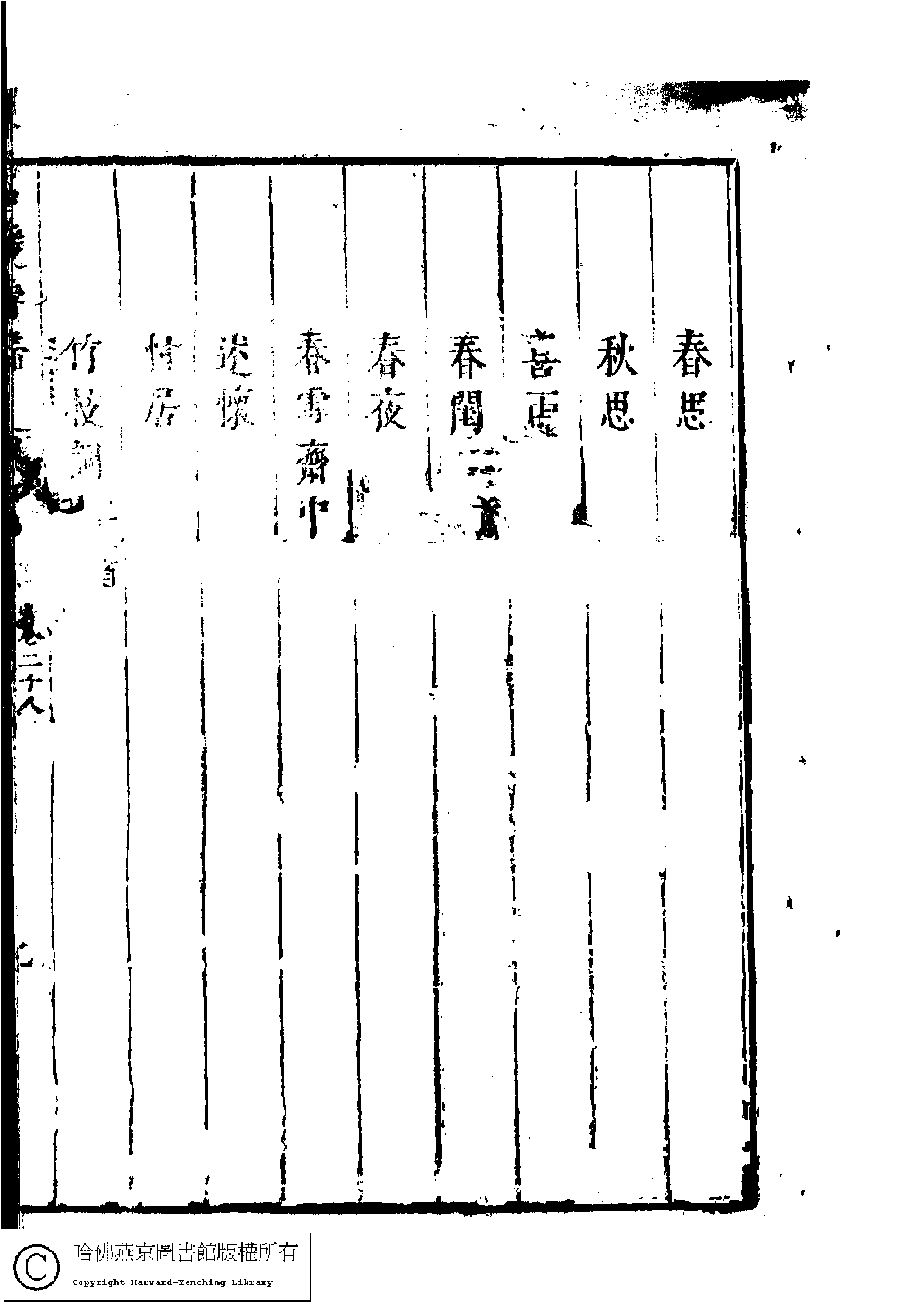 春思
秋思
春閨二首
春夜
春雪齋中
述懷
村居
竹枝詞二首
卷二十八
哈佛燕京圖書館版權所有
Copyright Harvard-Yenching Library